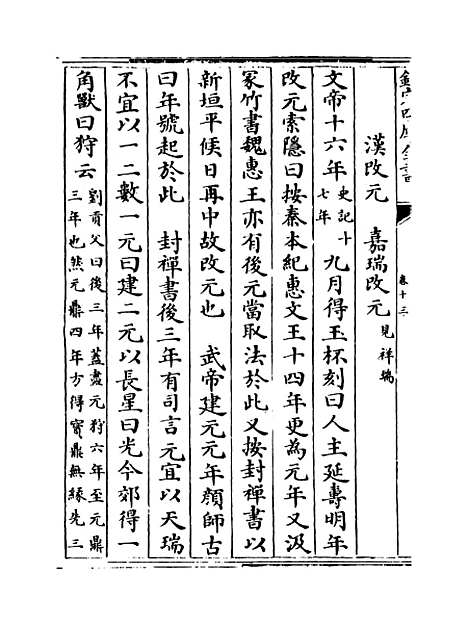 欽定四庫全書
卷十三
漢改元　嘉瑞改元見祥瑞
文帝十六年史記十七年九月得玉杯刻曰人主延壽明年
改元索隱曰按秦本紀惠文王十四年更為元年又汲
冢竹書魏惠王亦有後元當取法於此又按封禪書以
新垣平候日再中故改元也　武帝建元元年顏師古
曰年號起於此　封禪書後三年有司言元宜以天瑞
不宜以一二數一元曰建二元以長星曰光今郊得一
角獸曰狩云劉貢父曰後三年蓋盡元狩六年至元鼎三年也然元鼎四年方得寳鼎無縁先三